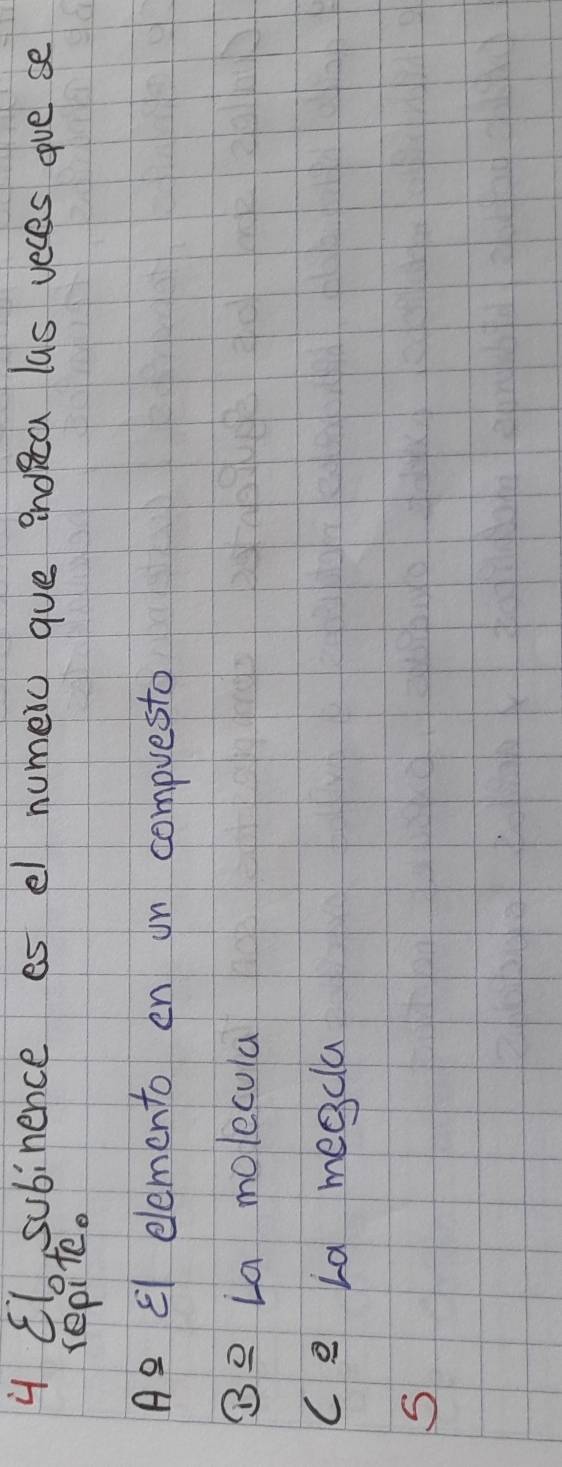 4 El subinence es el numero que indica las veces que se
repite.
A º El elemento en un compuesto
B º La molecula
C º La mezcla
5